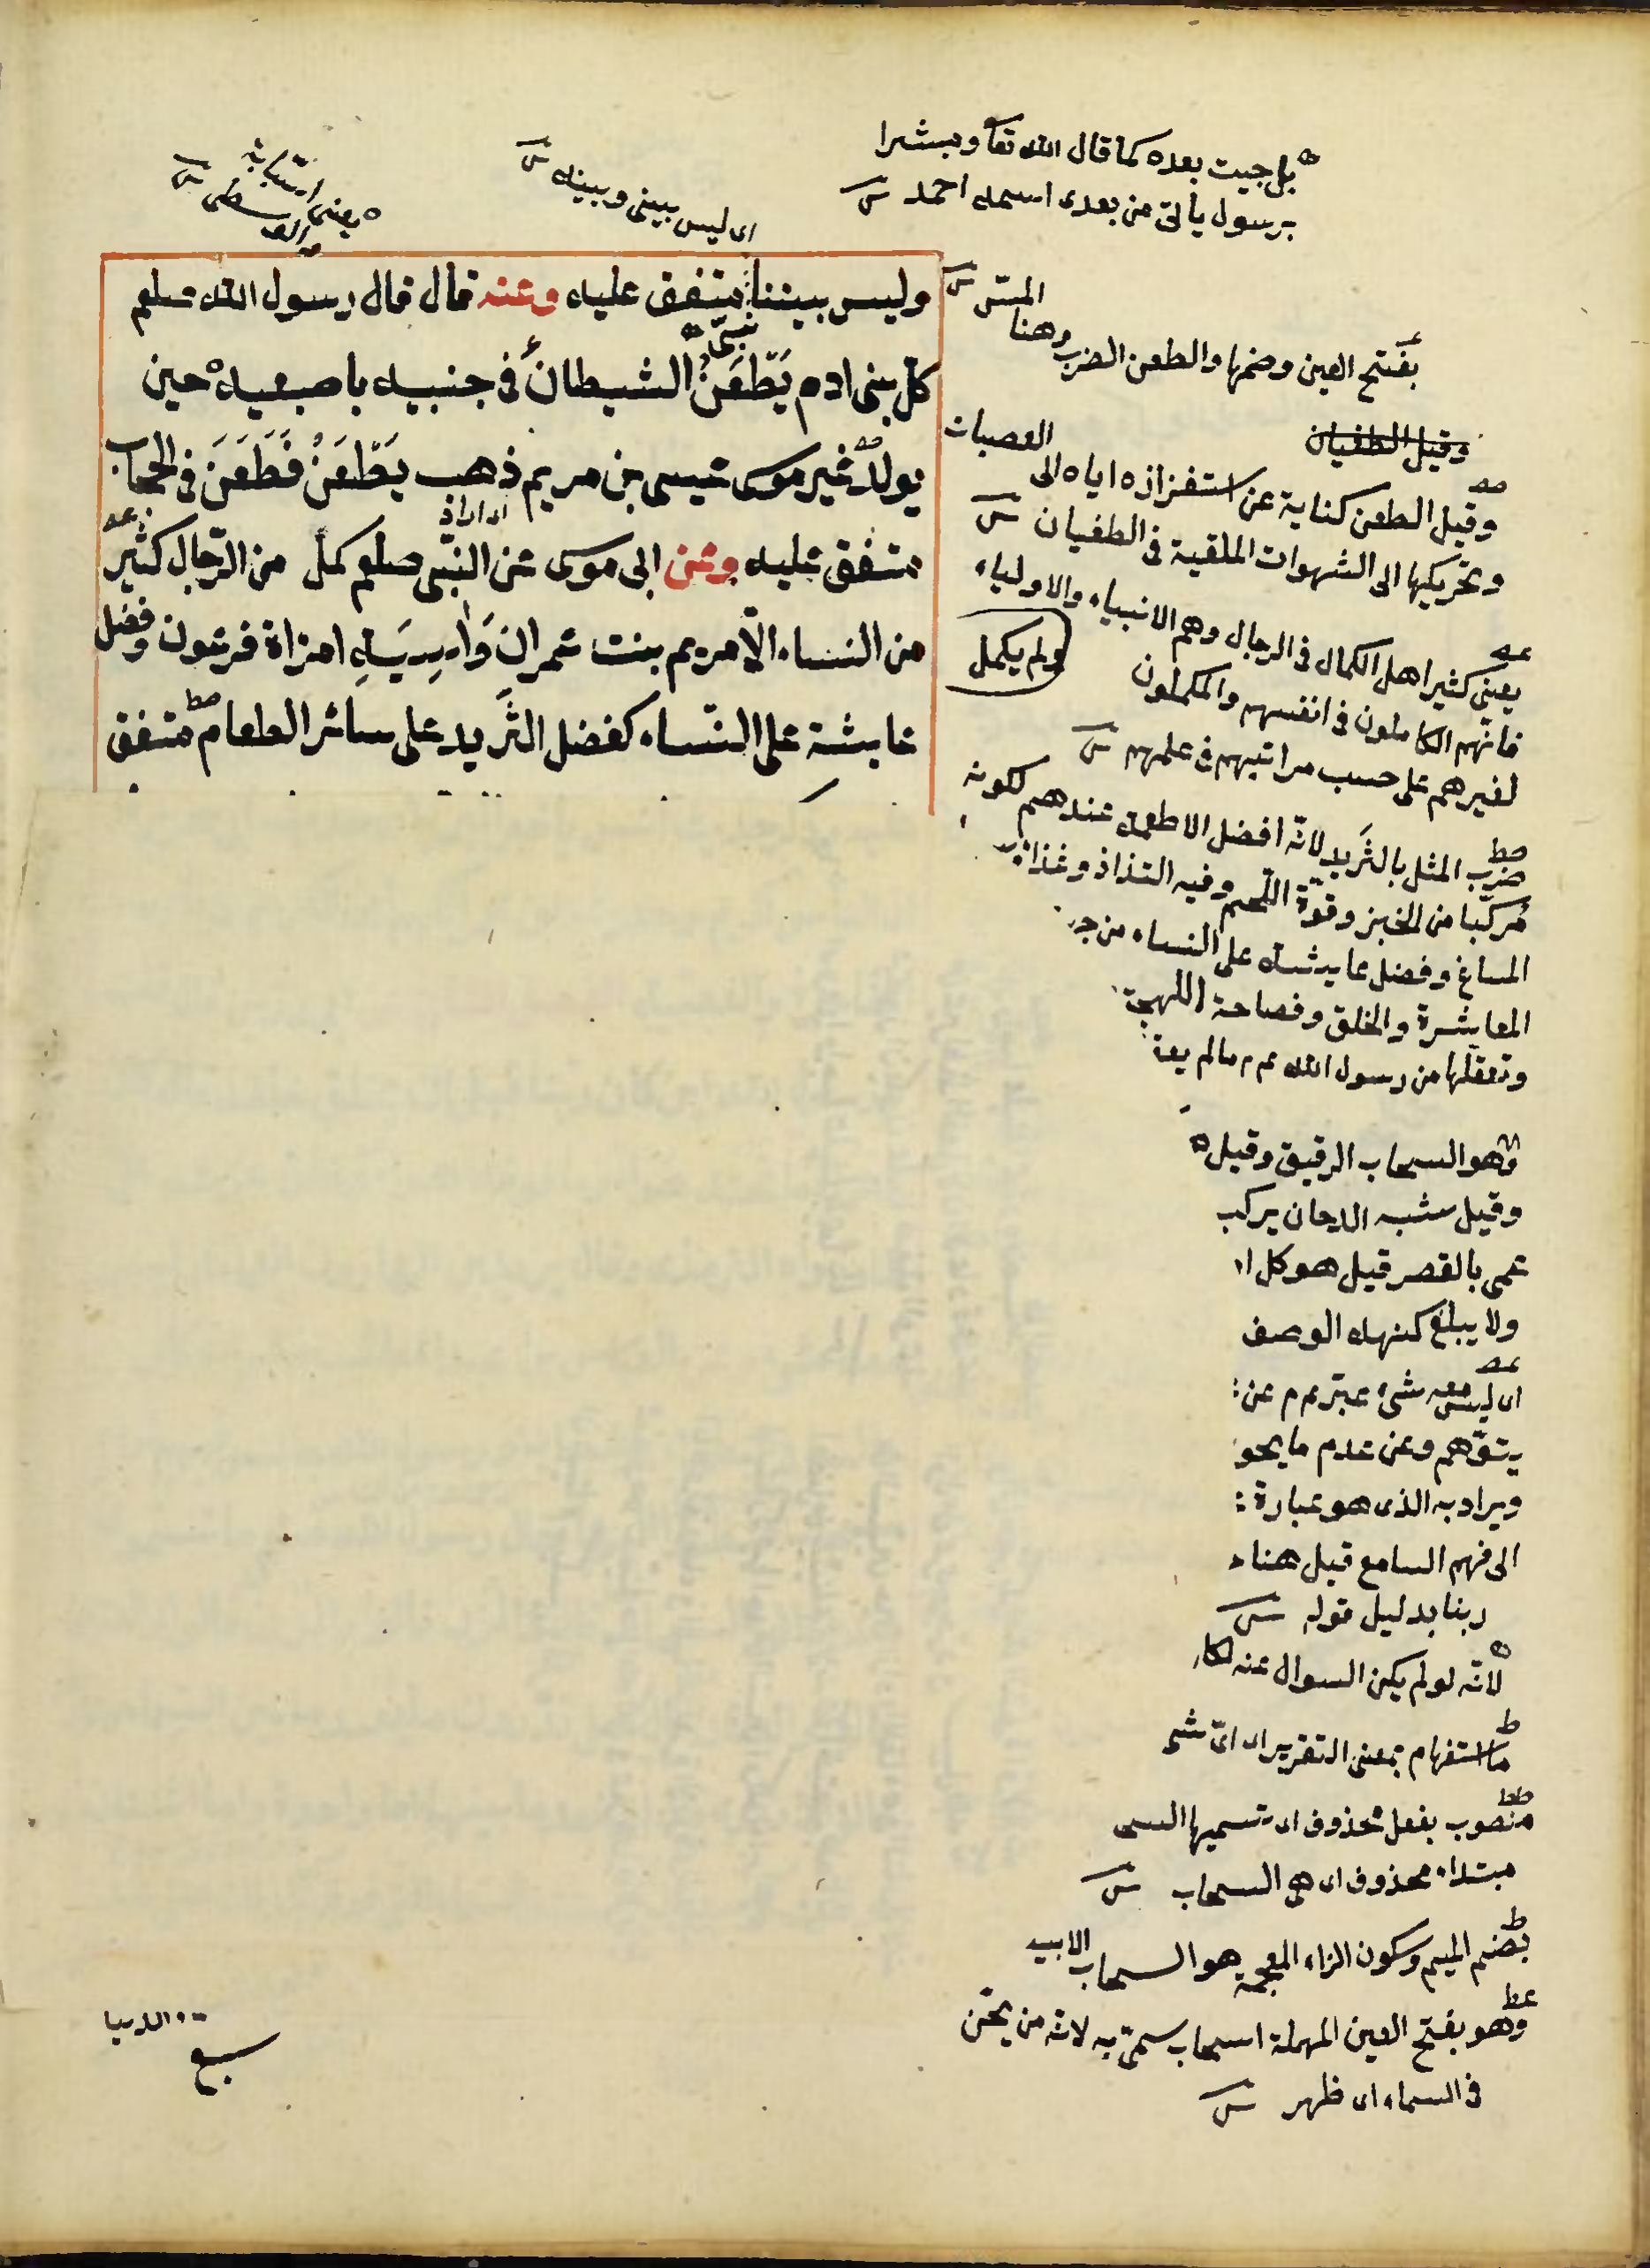 بل جيت بعده كما قال الله تعا ومبشرا
برسول يأتى من بعدى اسمه احمد
اى ليس بينى وبينه
يعنى السبابة
والوسطى
وليس بيننا نبىّ متفق عليه وعنه قال قال رسول الله صلعم
كلّ بنى ادم يَطعَنُ الشيطانُ فى جنبيه باصبعيه حين
يولد غير عيسى بن مريم ذهب يَطعَنُ فَطَعَنَ فى الحجاب
اى اراد
متفق عليه وعن ابى موسى عن النبّى صلعم كمل من الرّجال كثير
من النساء الّا مريم بنت عمران وَاسِيَهِ امراة فرعون وفضل
عايشة على النّساء كفضل الثَريد على سائر الطعام متفق
المسّ
بفتح العين وضمها والطعن الضرب وهنا
وقيل الطغيان
العصيات
وقيل الطعن كناية عن استفزازه اياه الى
وتحريكها الى الشهوات الملقية فى الطغيان
ولم يكمل
يعنى كثيرا اهل الكمال فى الرجال وهم الانبياء والاولياء
فانّهم الكاملون فى انفسهم والمكملون
لغيرهم على حسب مراتبهم فى علمهم
ضرب المثل بالثَريد لانّه افضل الاطعمة عندهم لكونه
مركبا من الخبز وقوّة اللّحم وفيه التذاذ وغذاء
المساغ وفضل عايشه على النساء من
المعاشرة والخلق وفصاحة اللهجة
وتعقلها من رسول الله عم مالم
وهو السحاب الرقيق وقيل
وقيل شبه الدخان يركب
عمى بالقصر قيل هو كل
ولا يبلغ كنهه الوصف
اى ليس معه شئ عبّر عم عن
يتوّهم وعن عدم ما
ويراد به الذى هو عبارة
الى فهم السامع قيل هنا
ربنا بدليل قوله
لانّه لو لم يكن السوال عنه
ما استفهام بمعنى التقرير اى اىّ شى
منصوب بفعل محذوف اى تسميها
مبتداء محذوف اى هى السحاب
بضم الميم وسكون الزاء المعجمة هو السحاب
وهو بفتح العين المهملة السحاب سمّى به لانه من
فى السماء اى ظهر
الدنيا
سبع